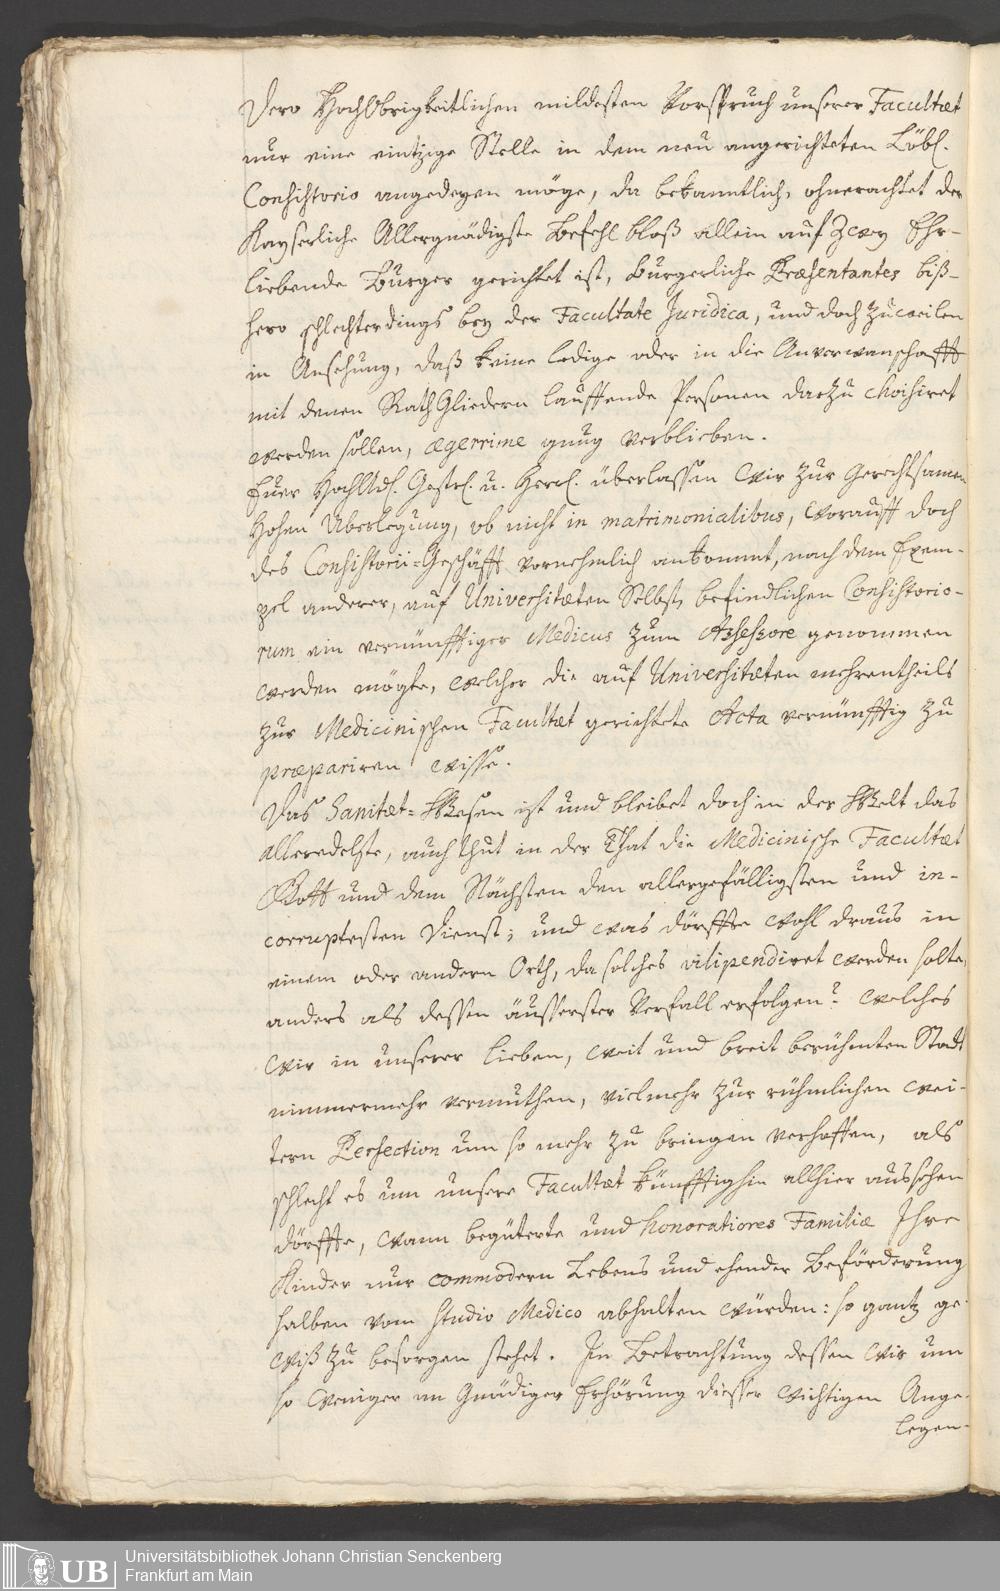 Dero HochObrigkeitlichen mildesten Vorspruch unserer Facultæt
nur eine eintzige Stelle in dem neu angerichteten Löbl.
Consistorio angedeyen möge, da bekanntlich, ohnerachtet der
Kayserliche Allergnädigste Befehl bloß allein auf Zwey Ehr-
liebende Burger gerichtet ist, burgerliche Præsentantes biß-
hero schlechterdings bey der Facultate Juridica, und doch zuweilen
in Ansehung, daß keine ledige oder in die Anverwanschafft
mit denen RathGliedern lauffende Personen darzu choisiret
werden sollen, ægerrime gnug verblieben.
Euer HochAdl. Gestr. u. Herrl. überlassen Wir zur Gerechtsamen
Hohen Überlegung, ob nicht in matrimonialibus, worauff doch
des Consistorii-Geschäfft vornehmlich ankommt, nach dem Exem-
pel anderer, auf Universitæten Selbst, befindlichen Consistorio-
rum ein vernünfftiger Medicus zum Assessore genommen
werden mögte, welcher die auf Universitæten mehrentheils
zur Medicinischen Facultæt gerichtete Acta vernünfftig zu
præpariren wisse.
Das Sanitæt-Wesen ist und bleibet doch in der Welt das
alleredelste, auch thut in der That die Medicinische Facultæt
Gott und dem Nächsten den allergefälligsten und in-
corruptesten Dienst; und was dörffte wohl draus in
einem oder andern Orth, da solches vilipendiret werden solte,
anders als dessen äusserster Verfall erfolgen? welches
wir in unserer lieben, weit und breit berühmten Stadt
nimmermehr vermuthen, vielmehr zur rühmlichen wei-
tern Perfection um so mehr zu bringen verhoffen, als
schlecht es um unsere Facultæt künfftighin allhier aussehen
dörffte, wann begüterte und honoratiores Familiæ Ihre
Kinder nur commodern Lebens und ehender Beförderung
halben vom Studio Medico abhalten würden: so gantz ge-
wiß zu besorgen stehet. In Betrachtung dessen wir um
so weniger an Gnädiger Erhörung dieser wichtigen Ange-
legen-
UB
Universitätsbibliothek Johann Christian Senckenberg
Frankfurt am Main